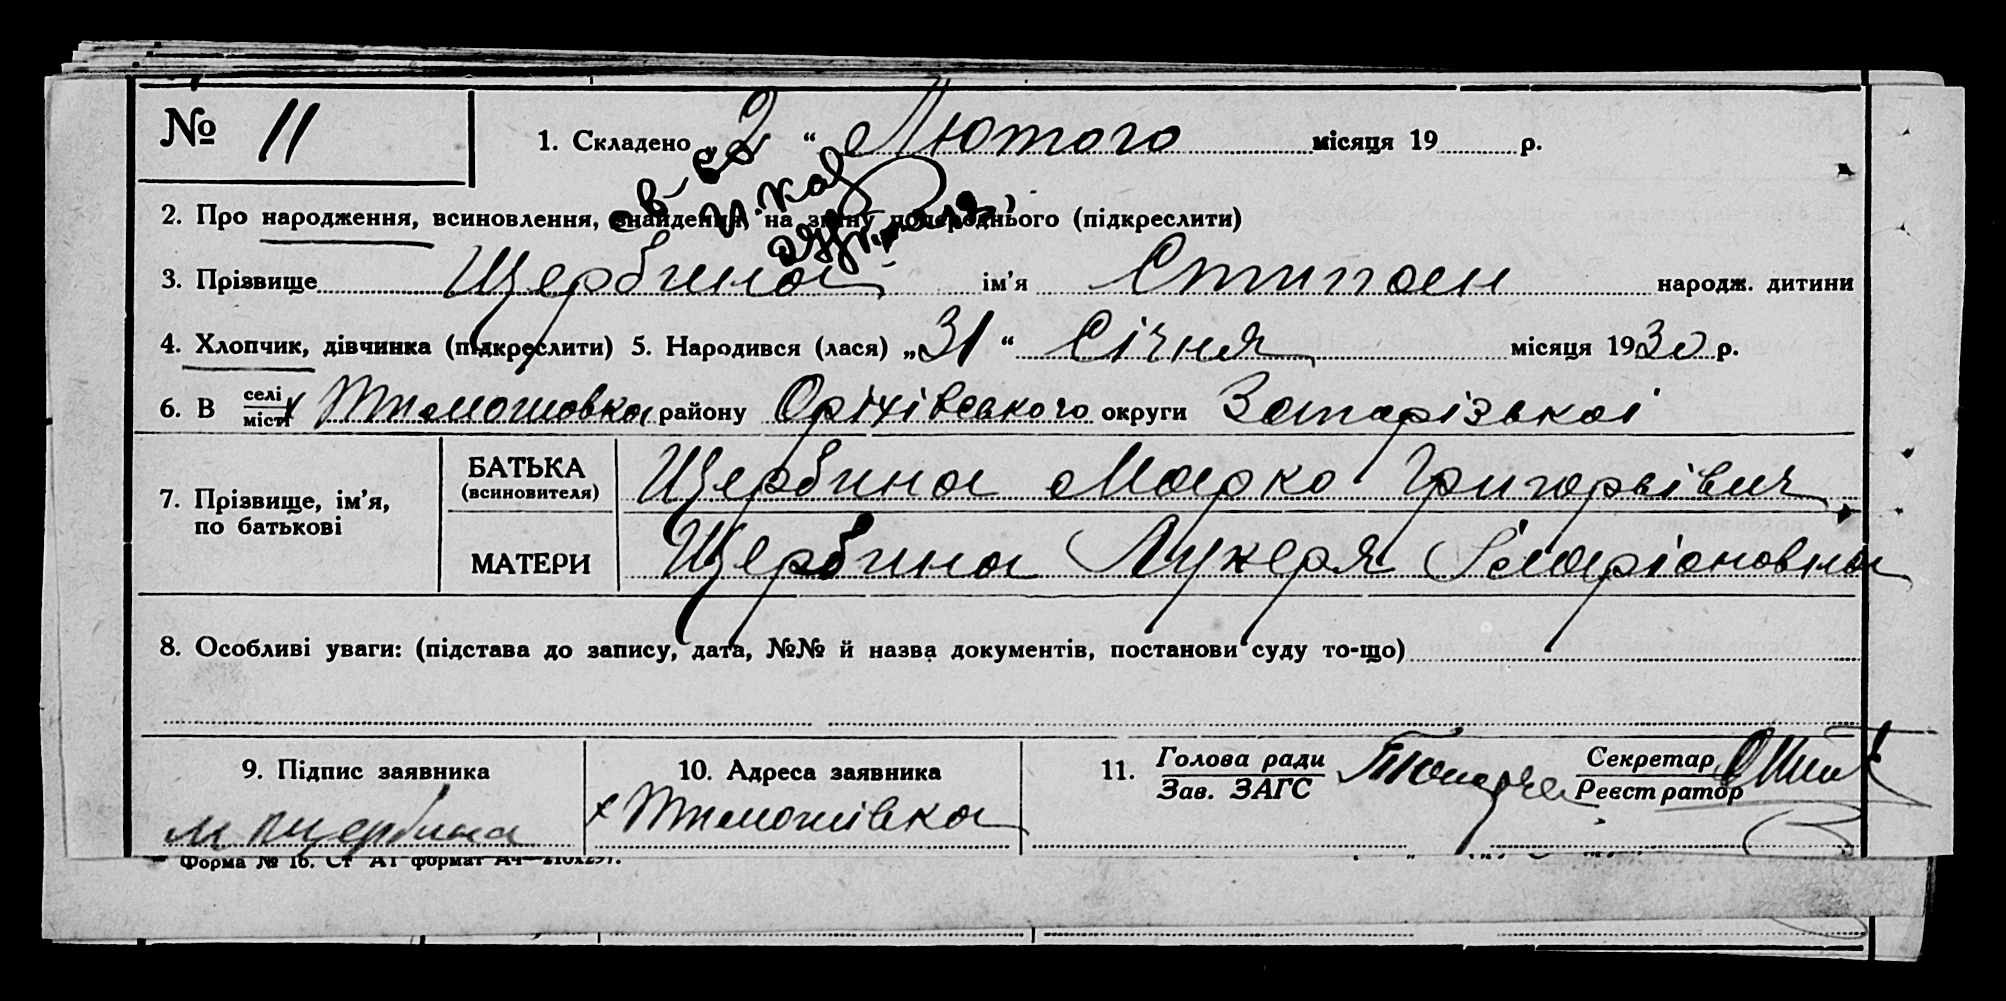 № 11
1. Складено 2 “ Лютого місяця 19 р.
2. Про народження, всиновлення, знайдення, на зміну попереднього (підкреслити)
3. Прізвище Щербина ім’я Стипан народж. дитини
4. Хлопчик, дівчинка (підкреслити) 5. Народився (лася) „31“ Січня місяця 1930 р.
6. В селі міст х Тимошовка району Оріхівського округи Запорізької
7. Прізвище, ім’я, по батькові
БАТЬКА (всиновителя) Щербина Марко Григорьівич
МАТЕРИ Щербина Лукеря Іларіоновна
8. Особливі уваги: (підстава до запису, дата, №№ й назва документів, постанови суду то-що)
9. Підпис заявника
М Щербина
10. Адреса заявника
х Тимошівка
11. Голова ради
Зав. ЗАГС
Секретар
Реєстратор
Форма № 16. Ст А1 формат А4—210х297.